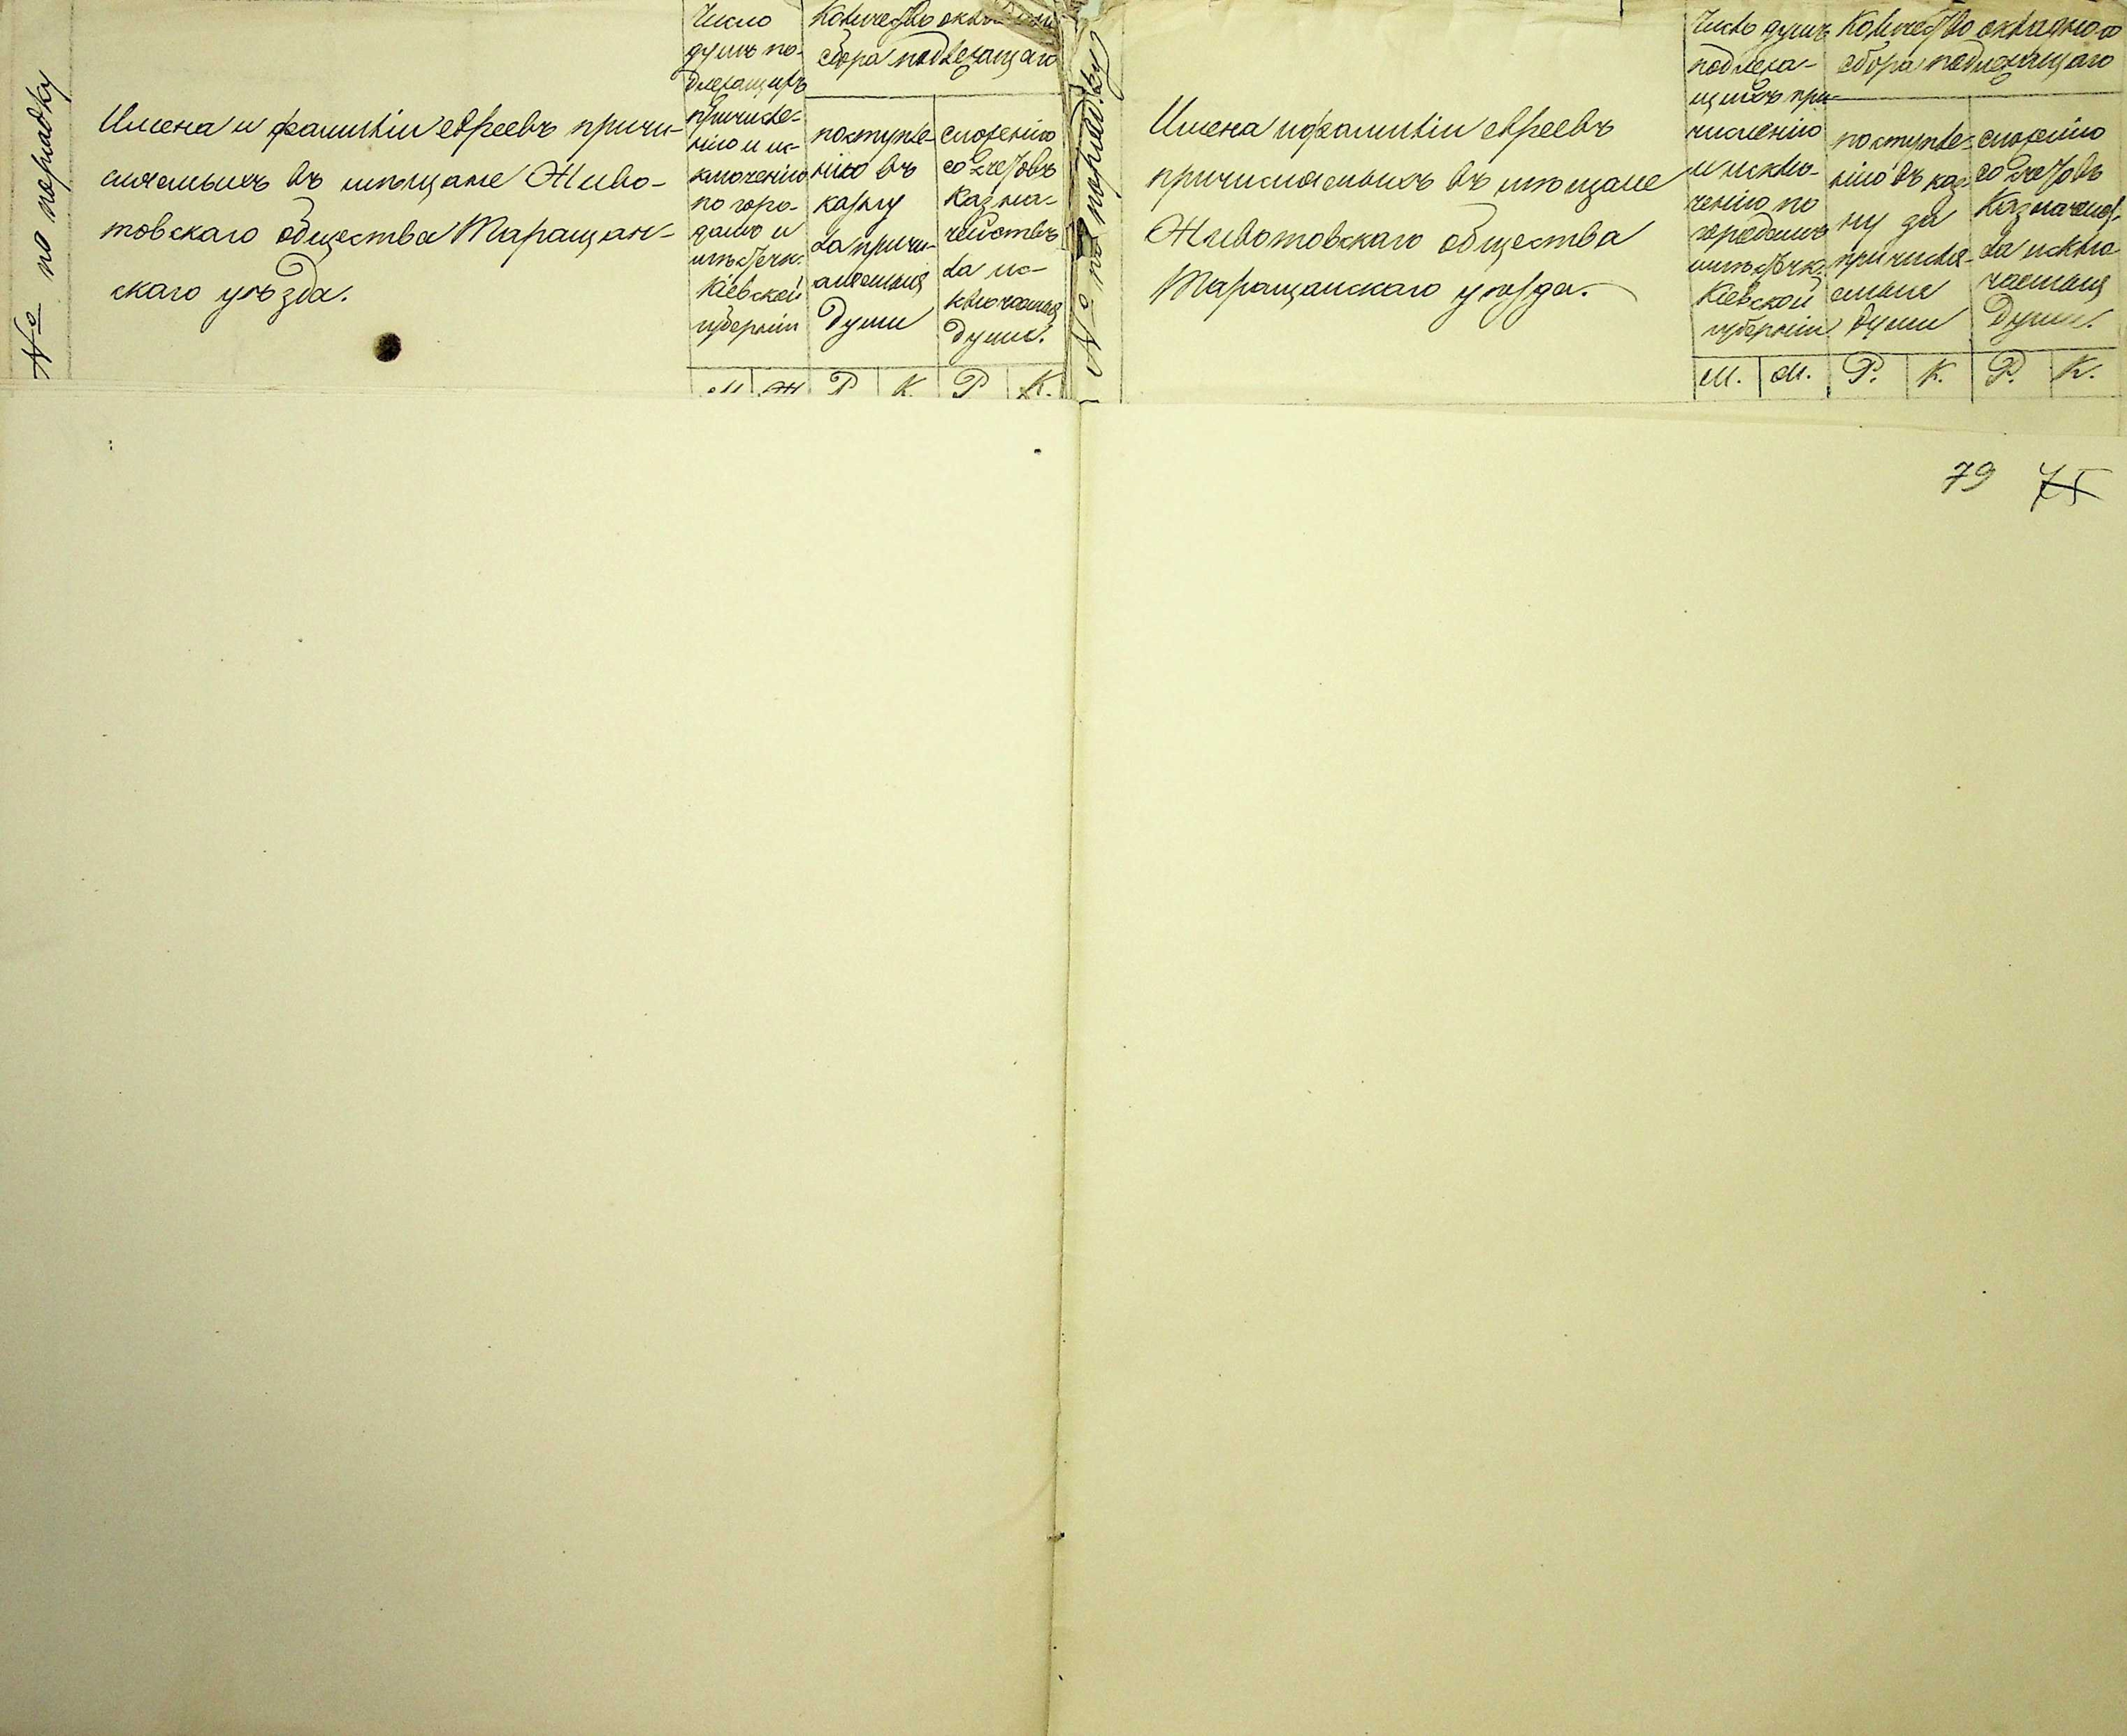 № по порядку
Имена и фамиліи евреевъ причи-
сляемыхъ въ мѣщане Живо-
товскаго общества Таращан-
скаго уѣзда.
Число
душъ по-
длежащихъ
причисле-
нію и ис-
ключенію
по горо-
дамъ и
мѣстечк.
Кіевской
губерніи
М Ж
Количество
сбора подлежащаго
поступле-
нію въ
казну
за причи-
сляемыя
души
Р К.
сложенію
со счетовъ
Казна-
чействъ
за ис-
ключаемыя
души.
Р К.
№ по порядку
Имена и фамиліи евреевъ
причисляемыхъ въ мѣщане
Животовскаго общества
Таращанскаго уѣзда.
Число душъ
подлежа-
щихъ при-
численію
и исклю-
ченію по
городамъ
мѣстечк.
Кіевской
губерніи
М. М.
Количество окладного
сбора подлежащаго
поступле-
нію въ каз-
ну за
причисля-
емыя
души
Р. К.
сложенію
со счетовъ
Казначейст.
за исклю-
чаемыя
души.
Р. К.
79 75